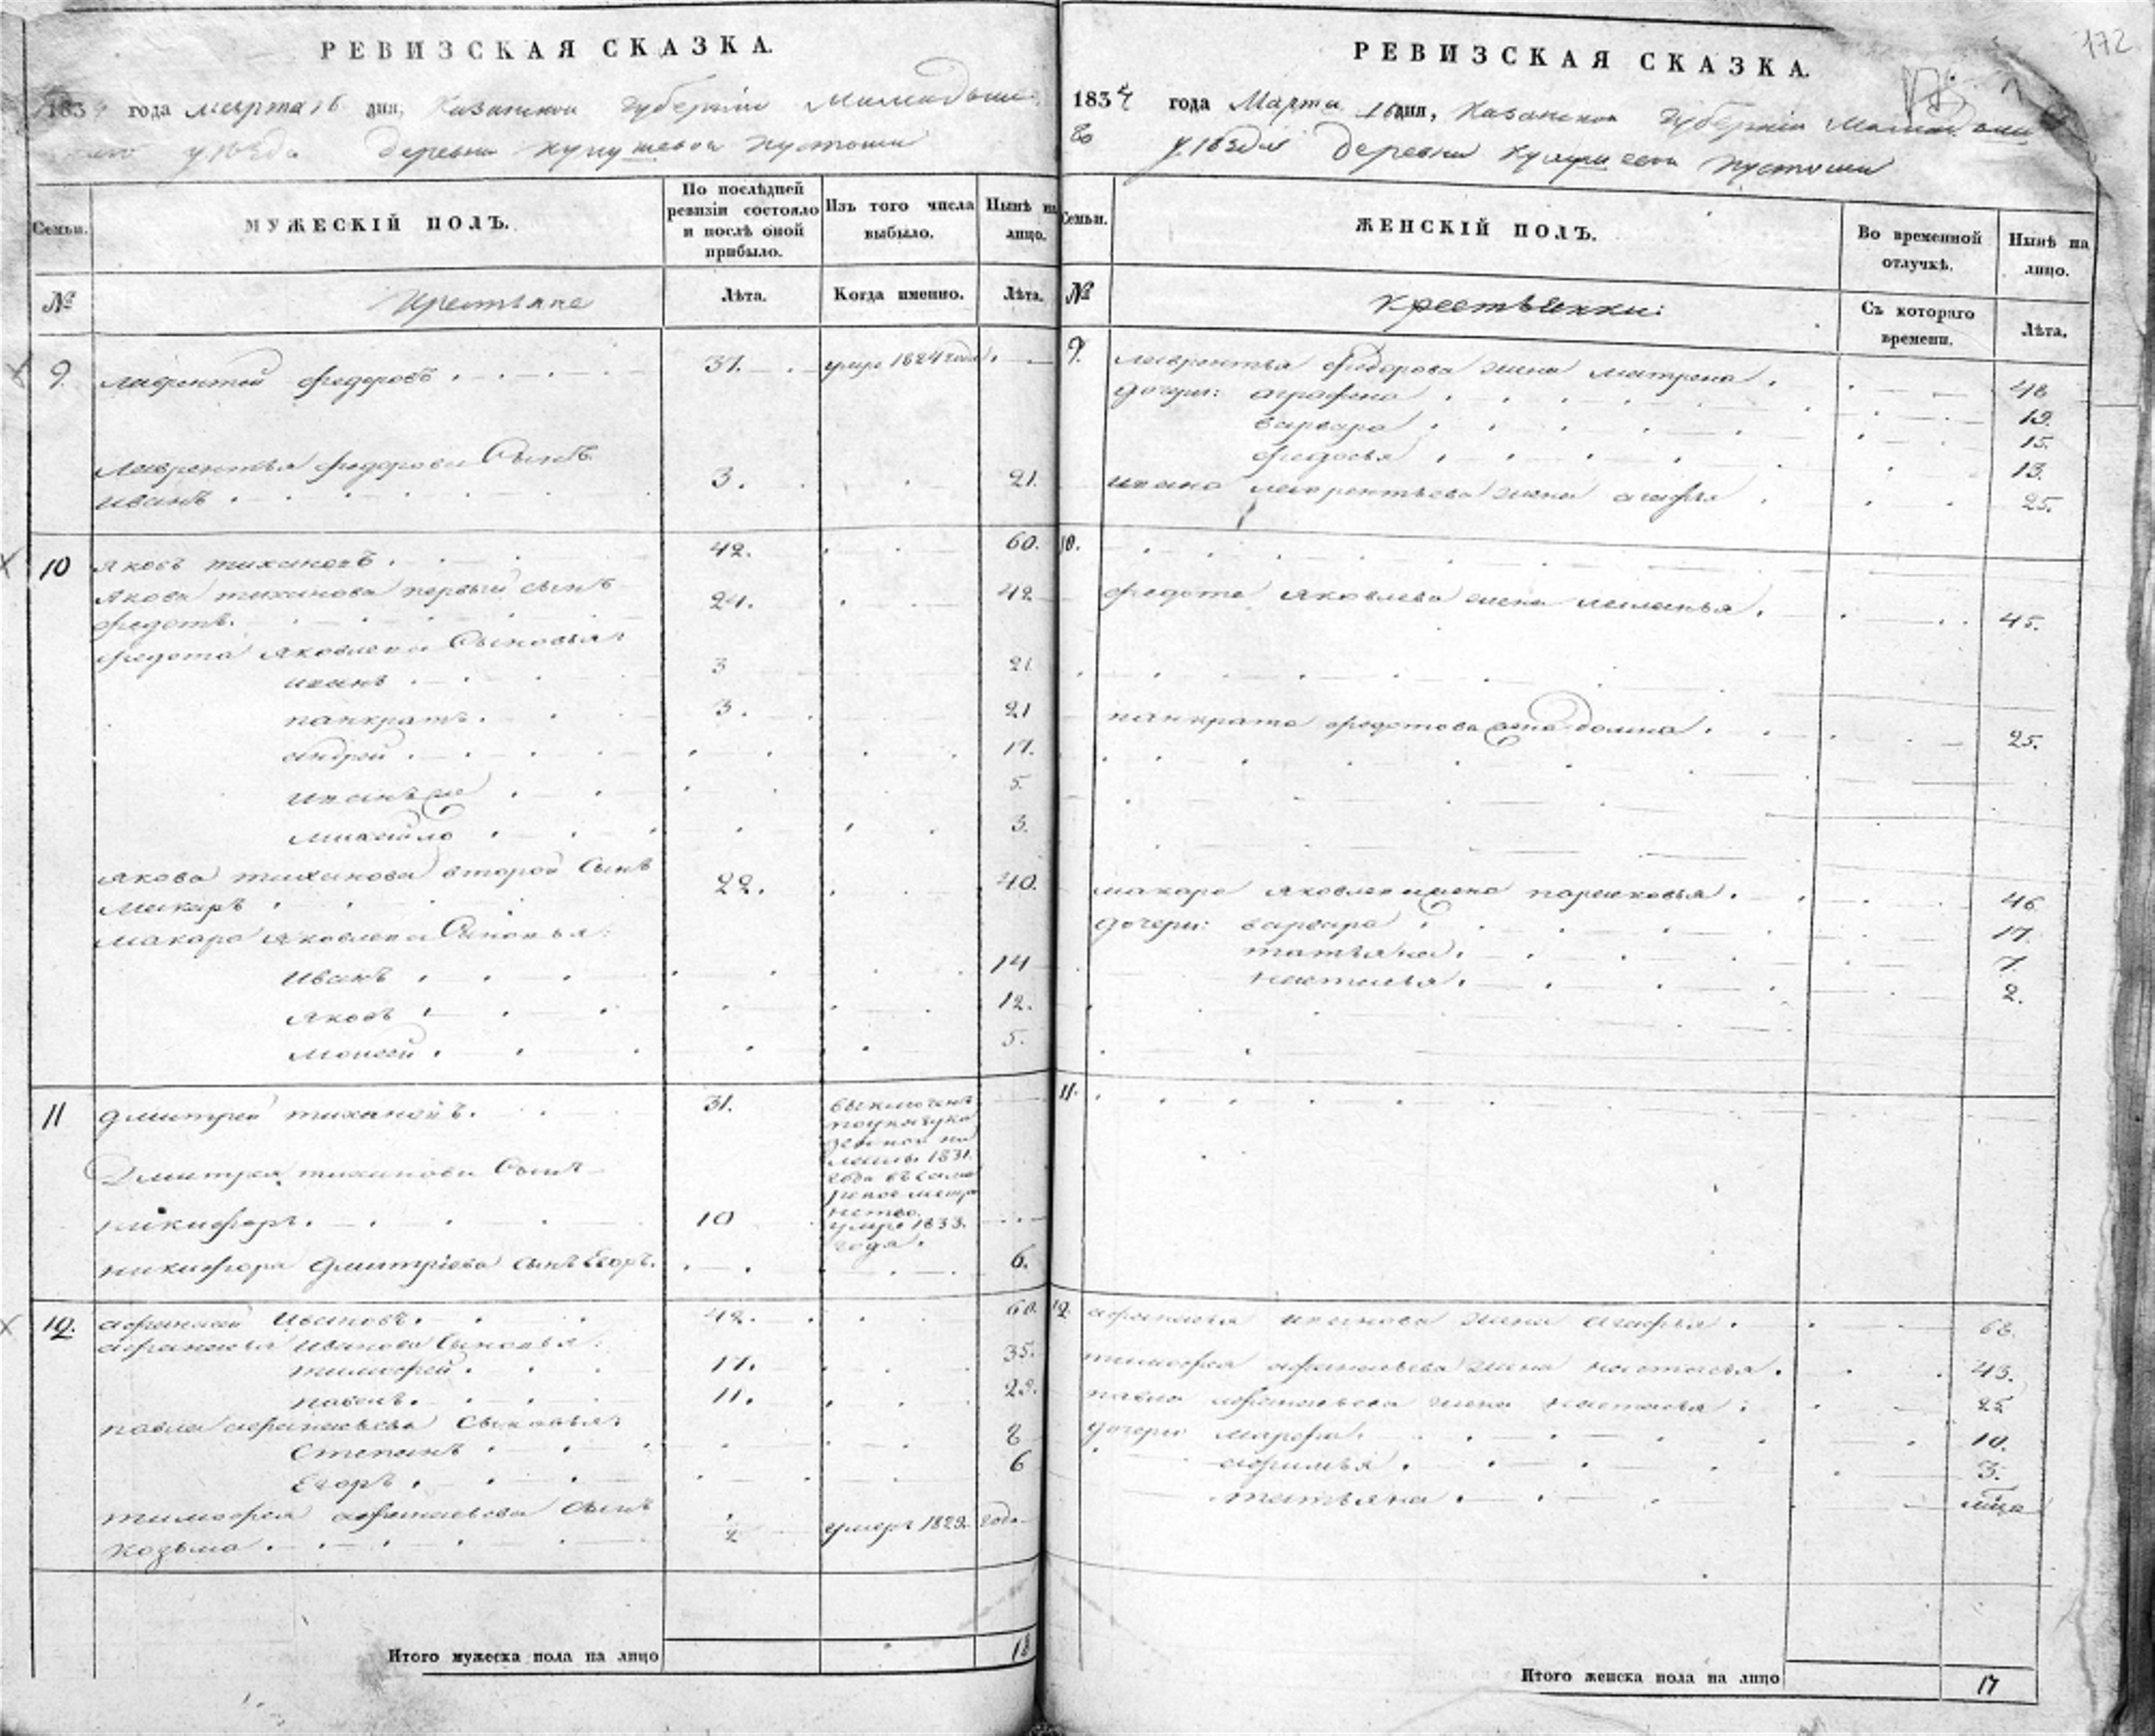 172
РЕВИЗСКАЯ СКАЗКА.
1834 года марта 16 дня, Казанской губерніи Мамадыш
ского уѣзда деревни пустоши
Семьи.
МУЖЕСКІЙ ПОЛЪ.
По послѣдней ревизіи состояло и послѣ оной прибыло.
Изъ того числа выбыло.
Нынѣ на лицо.
№
Крестьяне
Лѣта.
Когда именно.
Лѣта.
9. лаврентей федоровъ . 37. умре 1824 года.
Лаврентья федорова Сынъ
иванъ . 3. 21.
10 яковъ тихановъ . 42. 60.
Якова тиханова первый сынъ
федотъ. 24. 42
федота Яковлева Сыновья:
иванъ . 3 21
панкратъ . 3. 21
андрей . 17.
иванъ же . 5.
михайло . 3.
якова тиханова второй Сынъ
макаръ . 22. 40.
макара Яковлева Сыновья:
иванъ . 14
яковъ . 12.
моисей . 5.
11 дмитрей тихановъ. 31. выключенъ
1831.
года
Дмитрея тиханова Сынъ
никифоръ. 10 умре 1833.
года.
никифора дмитріева сынъ Егоръ. 6.
12. афанасей Ивановъ. 42. 60.
афанасья Иванова Сыновья:
тимофей . 17. 35.
павелъ. 11. 29.
павла афанасьева Сыновья:
Степанъ . 8
Егоръ . 6
тимофея афанасьева сынъ
козьма . 1/2 умеръ 1829. года
Итого мужеска пола на лицо 18
РЕВИЗСКАЯ СКАЗКА.
1834 года Марта 16 дня, Казанской Губерніи Мамадыш
го уѣзда деревни пустоши
Семьи.
ЖЕНСКІЙ ПОЛЪ.
Во временной отлучкѣ.
Нынѣ на лицо.
№
крестьянки:
Съ котораго времени.
Лѣта.
9. лаврентья федорова жена матрена . 48
дочери: аграфена . 19.
варвара . 15.
федосья . 13.
ивана лаврентьева жена агафья . 25.
10.
федота яковлева жена маланья . 45.
панкрата федотова жена домна . 25.
макара яковлева жена парасковья . 46
дочери: варвара . 17.
татьяна . 7
настасья . 2.
11.
12. афанасья иванова жена агафья . 68.
тимофея афанасьева жена настасья . 43.
павла афанасьева жена настасья : 25
дочери марфа . 10.
афимья . 3.
татьяна .
Итого женска пола на лицо 17